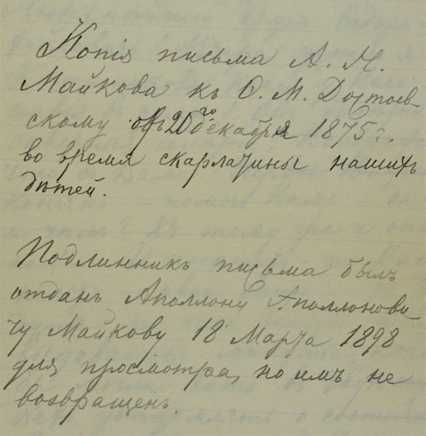 Копія письма А. Н.
Майкова къ Ѳ. М. Достоев-
скому отъ 20го декабря 1875 г.
во время скарлатины нашихъ
дѣтей.
Подлинникъ письма былъ
отданъ Аполлону Аполлонови-
чу Майкову 18 Марта 1898
для просмотра, но имъ не
возвращенъ.